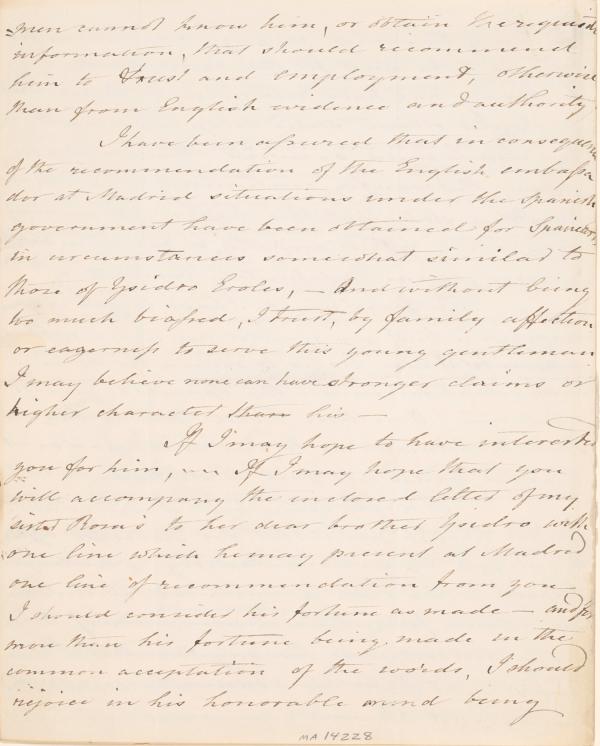 men cannot know him, or obtain the requisite
information, that should recommend
him to trust and employment, otherwise
than from English evidence and authority.
I have been assured that in consequence
of the recommendation of the English embassa
dor at Madrid situations under the Spanish
government have been obtained for Spaniards,
in circumstances somewhat similar to
those of Ysidro Eroles, – And without being
too much biassed, I trust, by family affection
or eagerness to serve this young gentleman
I may believe none can have stronger claims or
higher character than his –
If I may hope to have interested
you for him, — If I may hope that you
will accompany the enclosed letter of my
sister Rosa's to her dear brother Ysidro with
one line which he may present at Madrid
one line of recommendation from you
I should consider his fortune as made – and far
more than his fortune being made in the
common acceptation of the words, I should
rejoice in his honorable mind being
MA 14228